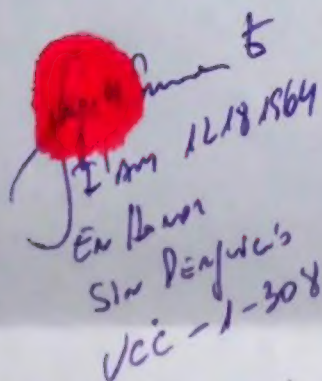 I'Am 12181964
En Honor
SIN Perjuicio
UCC-1-308